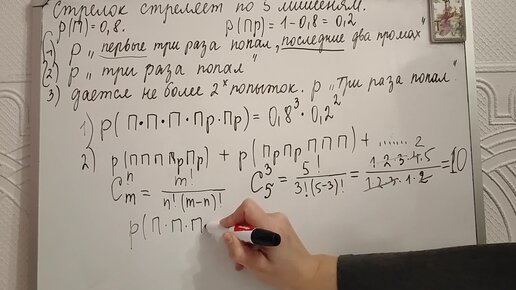 Стрелок стреляет по 5 мишеням.
p(П)=0,8. p(Пр)=1-0,8=0,2
1) p „первые три раза попал, последние два промах"
2) p „три раза попал"
3) дается не более 2ˣ попыток. p „Три раза попал".
1) p(П·П·П·Пр·Пр)=0,8³·0,2²
2) p(ППП ПрПр) + p(ПрПр ППП)+.......2
Cⁿₘ = m!/n!(m-n)! C³₅ = 5!/3!(5-3)! = 1·2·3·4·5/1·2·3·1·2 = 10
p(П·П·П·